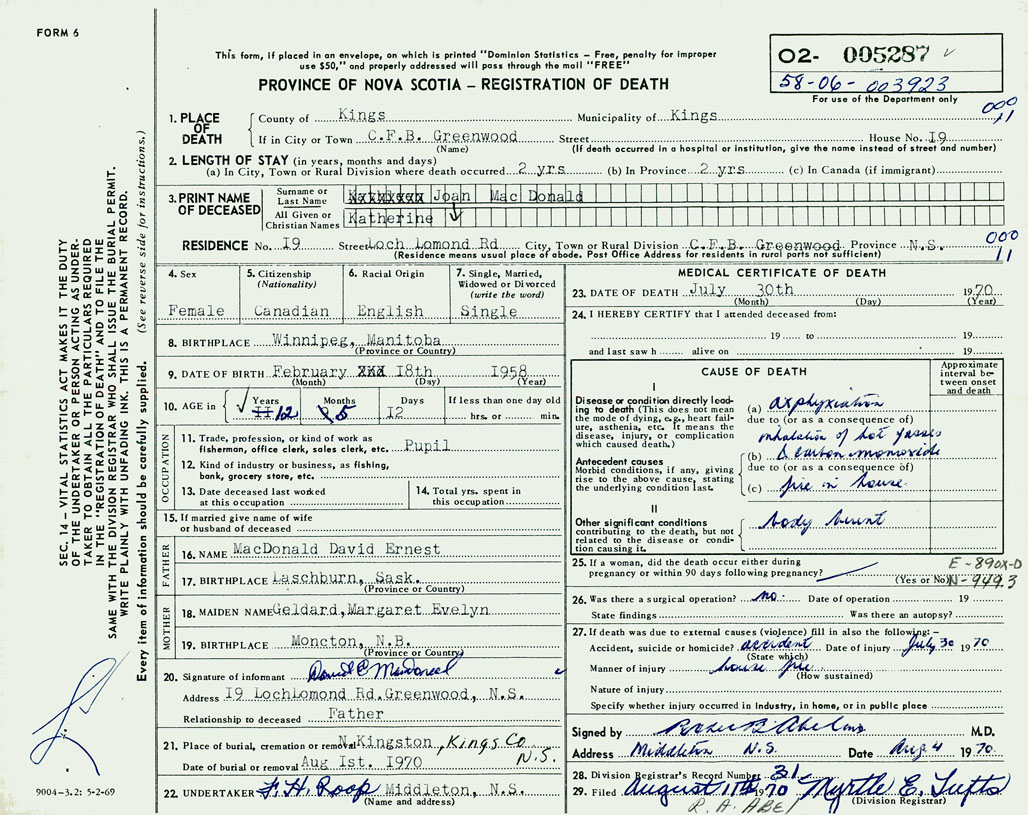 FORM 6
This form, if placed in an envelope, on which is printed "Dominion Statistics – Free, penalty for improper
use $50," and properly addressed will pass through the mail "FREE"
PROVINCE OF NOVA SCOTIA – REGISTRATION OF DEATH
O2- 005287
58-06-003923
For use of the Department only
000
11
1. PLACE OF DEATH County of Kings Municipality of Kings
If in City or Town C.F.B. Greenwood Street House No. I9
(Name) (If death occurred in a hospital or institution, give the name instead of street and number)
2. LENGTH OF STAY (in years, months and days)
(a) In City, Town or Rural Division where death occurred 2 yrs (b) In Province 2 yrs (c) In Canada (if immigrant)
3. PRINT NAME OF DECEASED
Surname or Last Name Joan Mac Donald
All Given or Christian Names Katherine
RESIDENCE No. I9 Street Loch Lomond Rd City, Town or Rural Division C.F.B. Greenwood Province N.S.
(Residence means usual place of abode. Post Office Address for residents in rural parts not sufficient)
000
11
4. Sex
Female
5. Citizenship
(Nationality)
Canadian
6. Racial Origin
English
7. Single, Married,
Widowed or Divorced
(write the word)
Single
8. BIRTHPLACE Winnipeg, Manitoba
(Province or Country)
9. DATE OF BIRTH February XXX I8th I958
(Month) (Day) (Year)
10. AGE in Years Months Days If less than one day old
II 12 5 I2 hrs. or min.
OCCUPATION
11. Trade, profession, or kind of work as
fisherman, office clerk, sales clerk, etc. Pupil
12. Kind of industry or business, as fishing,
bank, grocery store, etc.
13. Date deceased last worked
at this occupation
14. Total yrs. spent in
this occupation
15. If married give name of wife
or husband of deceased
FATHER
16. NAME MacDonald David Ernest
17. BIRTHPLACE Laschburn, Sask.
(Province or Country)
MOTHER
18. MAIDEN NAME Geldard,Margaret Evelyn
19. BIRTHPLACE Moncton, N.B.
(Province or Country)
20. Signature of informant David E MacDonald
Address I9 LochLomond Rd.Greenwood, N.S.
Relationship to deceased Father
21. Place of burial, cremation or removal N.Kingston, Kings Co
N.S.
Date of burial or removal Aug Ist. I970
22. UNDERTAKER F. H. Roop Middleton, N.S.
(Name and address)
MEDICAL CERTIFICATE OF DEATH
23. DATE OF DEATH July 30th 1970
(Month) (Day) (Year)
24. I HEREBY CERTIFY that I attended deceased from:
19 to 19
and last saw h alive on 19
CAUSE OF DEATH
Approximate
interval be-
tween onset
and death
I
Disease or condition directly lead-
ing to death (This does not mean
the mode of dying, e.g., heart fail-
ure, asthenia, etc. it means the
disease, injury, or complication
which caused death.)
(a) asphyxiation
due to (or as a consequence of)
inhalation of hot gasses
Antecedent causes
Morbid conditions, if any, giving
rise to the above cause, stating
the underlying condition last.
(b) & carbon monoxide
due to (or as a consequence of)
(c) fire in house
II
Other significant conditions
contributing to the death, but not
related to the disease or condi-
tion causing it.
body burnt
25. If a woman, did the death occur either during
pregnancy or within 90 days following pregnancy?
(Yes or No)
E-890X-0
N-949.3
26. Was there a surgical operation? no Date of operation 19
State findings Was there an autopsy?
27. If death was due to external causes (violence) fill in also the following: –
Accident, suicide or homicide? accident Date of injury July 30 1970
(State which)
Manner of injury house fire
(How sustained)
Nature of injury
Specify whether injury occurred in industry, in home, or in public place
Signed by M.D.
Address Middleton N.S. Date Aug 4 1970
28. Division Registrar's Record Number 31
29. Filed August 11th 1970 Myrtle E. Tufts
(Division Registrar)
R. A. ABEL
SEC. 14 – VITAL STATISTICS ACT MAKES IT THE DUTY
OF THE UNDERTAKER OR PERSON ACTING AS UNDER-
TAKER TO OBTAIN ALL THE PARTICULARS REQUIRED
IN THE "REGISTRATION OF DEATH" AND TO FILE THE
SAME WITH THE DIVISION REGISTRAR WHO SHALL ISSUE THE BURIAL PERMIT.
WRITE PLAINLY WITH UNFADING INK. THIS IS A PERMANENT RECORD.
Every item of information should be carefully supplied. (See reverse side for instructions.)
9004-3.2: 5-2-69